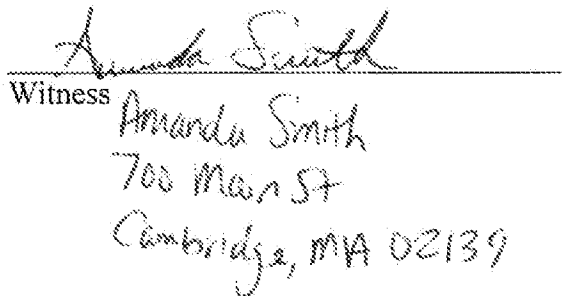 Amanda Smith
Witness
Amanda Smith
700 Main St
Cambridge, MA 02139